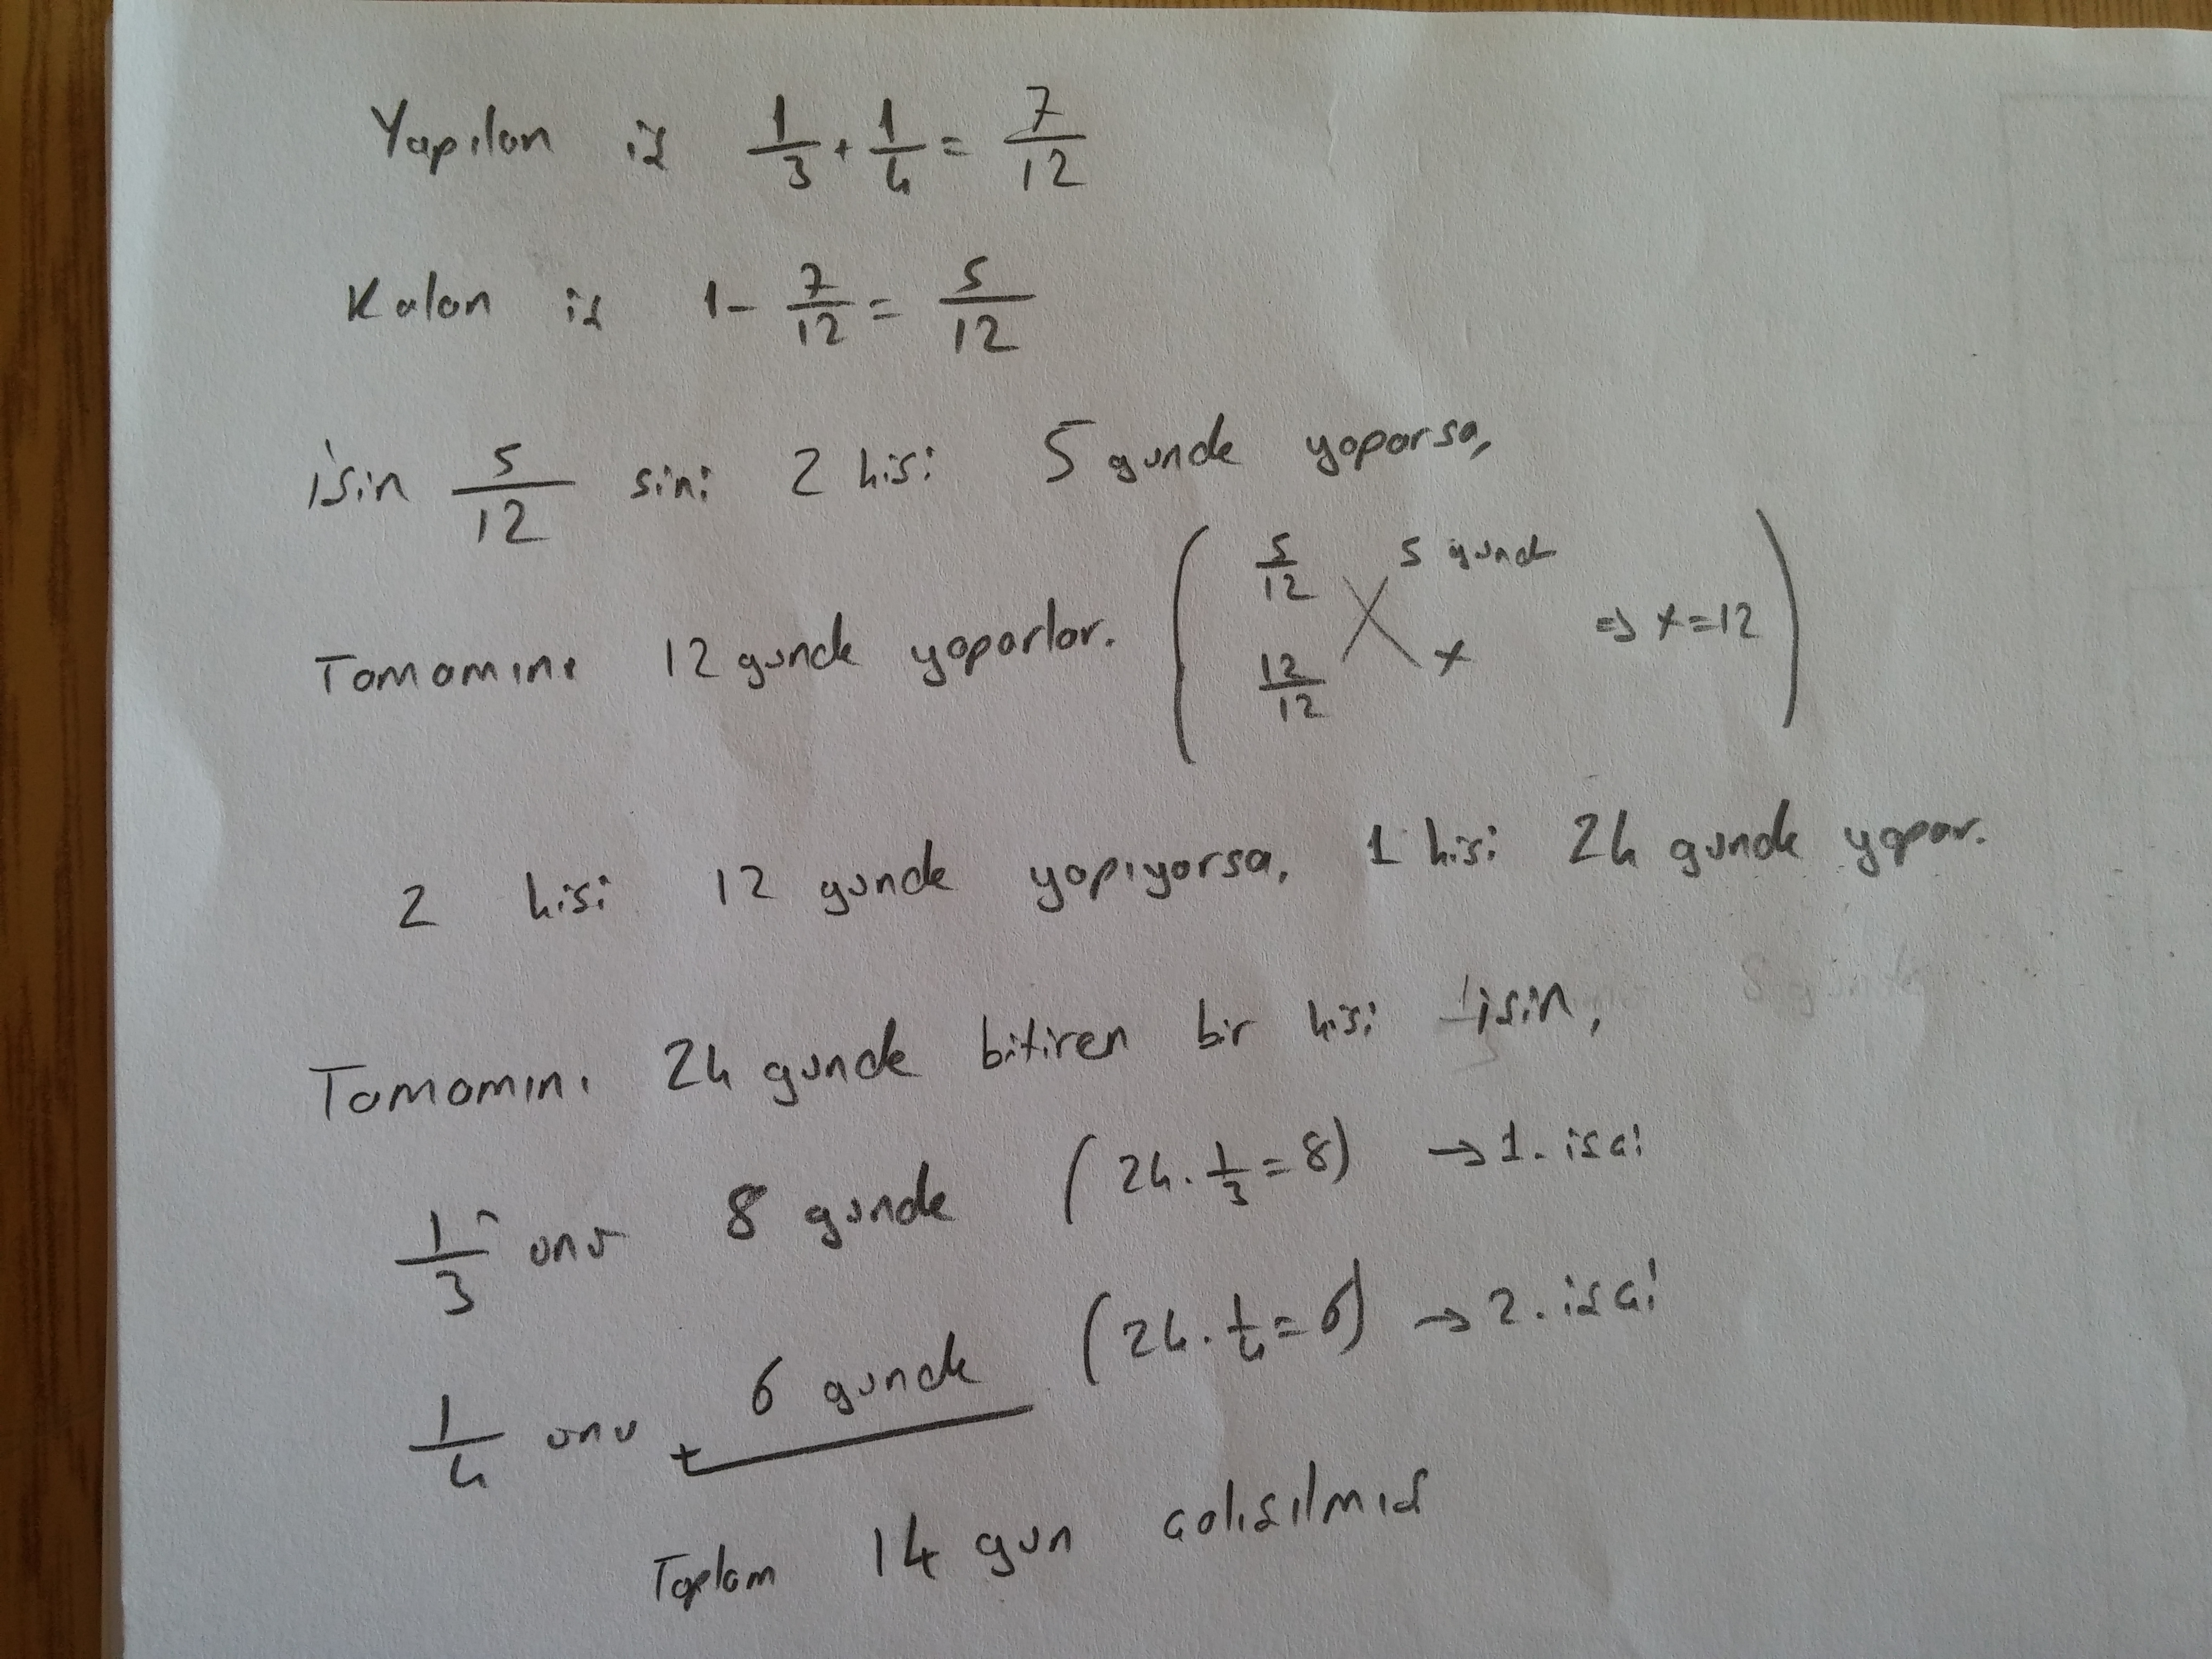 Yapılan iş 1/3 + 1/4 = 7/12
Kalan iş 1 - 7/12 = 5/12
işin 5/12 sini 2 kişi 5 günde yaparsa,
Tamamını 12 günde yaparlar. ( 5/12 5 günde 12/12 x ⇒ x=12 )
2 kişi 12 günde yapıyorsa, 1 kişi 24 günde yapar.
Tamamını 24 günde bitiren bir kişi işin,
1/3 ünü 8 günde (24 . 1/3 = 8) → 1. işçi
1/4 ünü + 6 günde (24 . 1/4 = 6) → 2. işçi
Toplam 14 gün çalışılmış